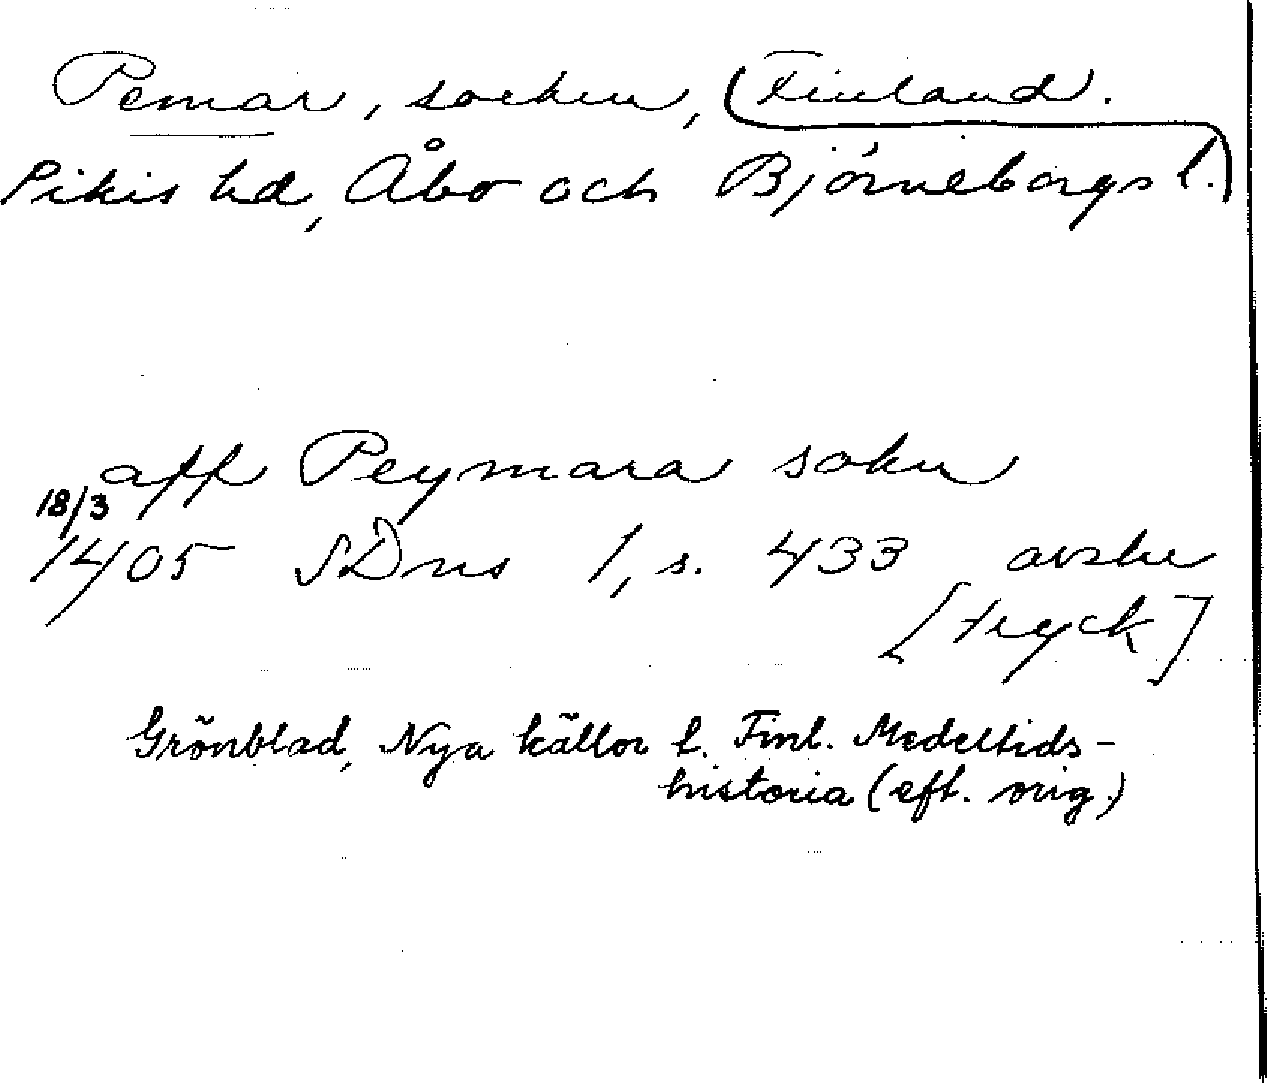 Pemar, socken, (Finland.
Pikis hd, Åbo och Björneborgs l.)
aff Peymara sokn
18/3
1405 SDns 1, s. 433 avskr
[tryck]
Grönblad, Nya källor t. Finl. Medeltids-
historia (eft. orig.)